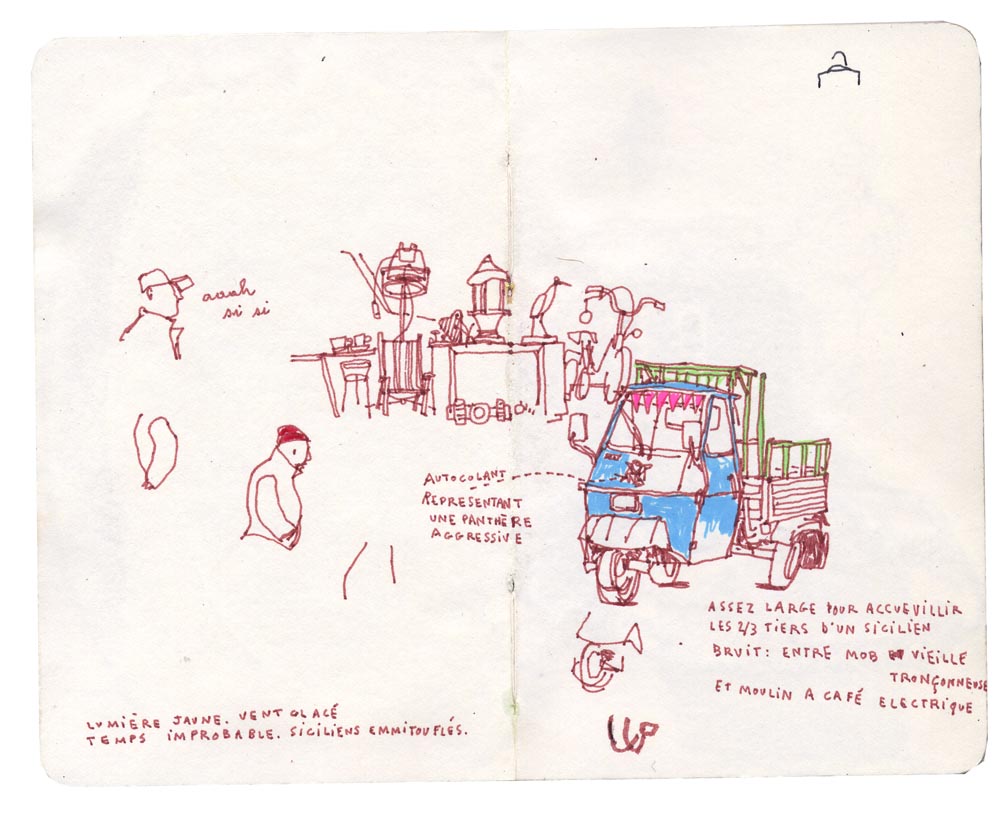 aaah
si si
AUTOCOLANT
REPRESENTANT
UNE PANTHÈRE
AGGRESSIVE
ASSEZ LARGE POUR ACCUEVILLIR
LES 2/3 TIERS D'UN SICILIEN
BRUIT: ENTRE MOB VIEILLE
TRONÇONNEUSE
ET MOULIN A CAFÉ ELECTRIQUE
LUMIÈRE JAUNE. VENT GLACÉ
TEMPS IMPROBABLE. SICILIENS EMMITOUFLÉS.